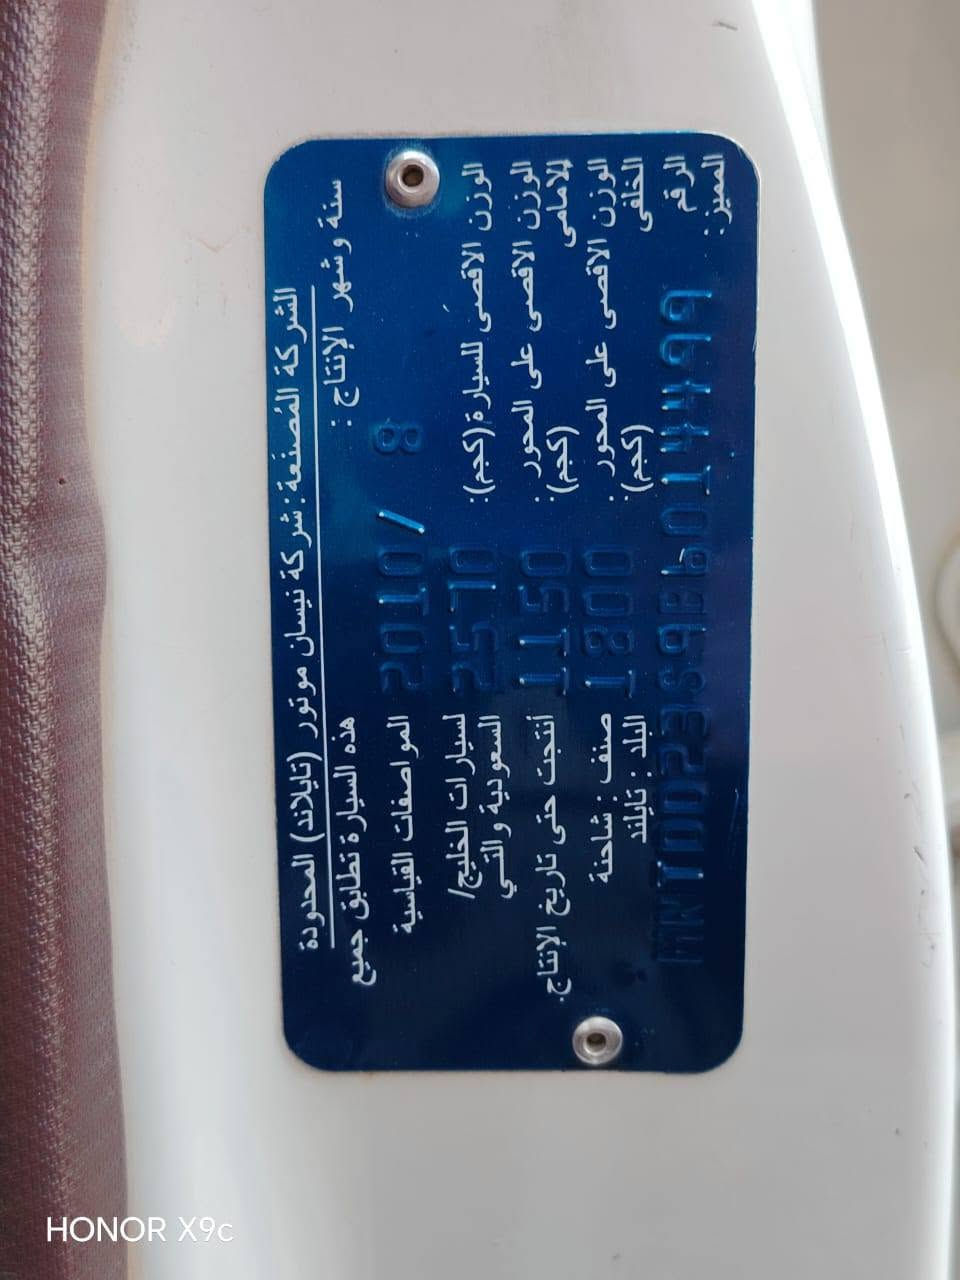 الشركة المُصنعة : شركة نيسان موتور (تايلاند) المحدودة
سنة وشهر الإنتاج :
2010/ 8
الوزن الاقصى للسيارة (كجم) :
2570
الوزن الاقصى على المحور :
الامامى (كجم)
1150
الوزن الاقصى على المحور :
الخلفى (كجم)
1800
هذه السيارة تطابق جميع
المواصفات القياسية
لسيارات الخليج/
السعودية والتي
أنتجت حتى تاريخ الإنتاج.
صنف : شاحنة
البلد : تايلند
الرقم
المميز :
HONOR X9c